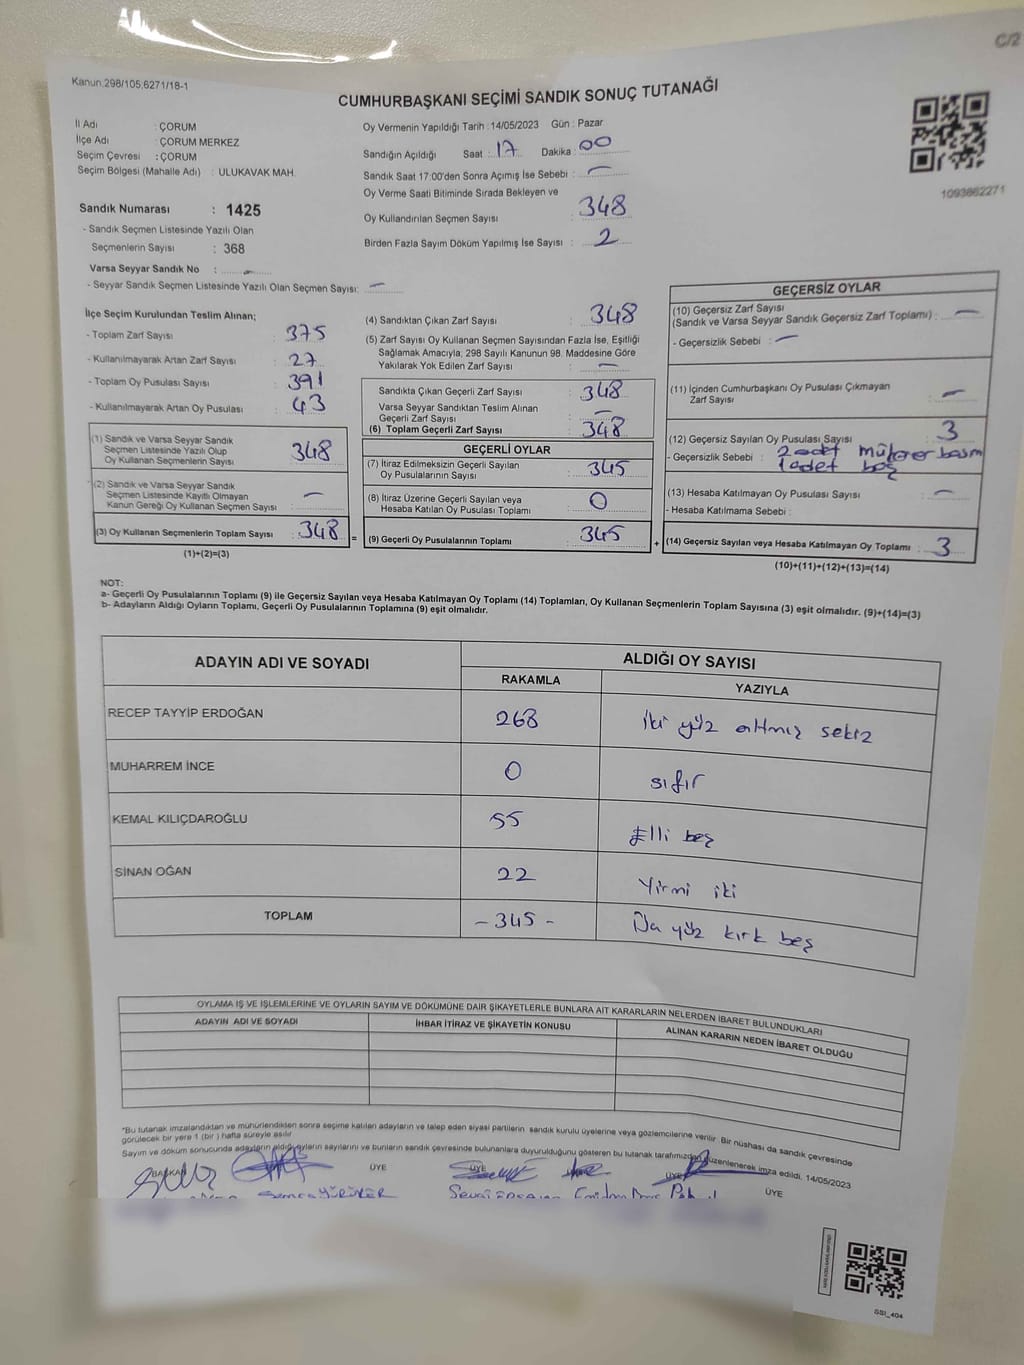 C/2
Kanun.298/105,6271/18-1
CUMHURBAŞKANI SEÇİMİ SANDIK SONUÇ TUTANAĞI
İl Adı : ÇORUM
İlçe Adı : ÇORUM MERKEZ
Seçim Çevresi : ÇORUM
Seçim Bölgesi (Mahalle Adı) : ULUKAVAK MAH.
Sandık Numarası : 1425
- Sandık Seçmen Listesinde Yazılı Olan
Seçmenlerin Sayısı : 368
Varsa Seyyar Sandık No : -
- Seyyar Sandık Seçmen Listesinde Yazılı Olan Seçmen Sayısı: -
Oy Vermenin Yapıldığı Tarih :14/05/2023 Gün : Pazar
Sandığın Açıldığı Saat : 17 Dakika : 00
Sandık Saat 17:00'den Sonra Açımış İse Sebebi : -
Oy Verme Saati Bitiminde Sırada Bekleyen ve
Oy Kullandırılan Seçmen Sayısı : 348
Birden Fazla Sayım Döküm Yapılmış İse Sayısı : 2
1093862271
İlçe Seçim Kurulundan Teslim Alınan;
- Toplam Zarf Sayısı : 375
- Kullanılmayarak Artan Zarf Sayısı : 27
- Toplam Oy Pusulası Sayısı : 391
- Kullanılmayarak Artan Oy Pusulası : 43
(1) Sandık ve Varsa Seyyar Sandık
Seçmen Listesinde Yazılı Olup
Oy Kullanan Seçmenlerin Sayısı : 348
(2) Sandık ve Varsa Seyyar Sandık
Seçmen Listesinde Kayıtlı Olmayan
Kanun Gereği Oy Kullanan Seçmen Sayısı : -
(3) Oy Kullanan Seçmenlerin Toplam Sayısı : 348
(1)+(2)=(3)
=
(4) Sandıktan Çıkan Zarf Sayısı : 348
(5) Zarf Sayısı Oy Kullanan Seçmen Sayısından Fazla İse, Eşitliği
Sağlamak Amacıyla, 298 Sayılı Kanunun 98. Maddesine Göre
Yakılarak Yok Edilen Zarf Sayısı : -
Sandıkta Çıkan Geçerli Zarf Sayısı : 348
Varsa Seyyar Sandıktan Teslim Alınan
Geçerli Zarf Sayısı : -
(6) Toplam Geçerli Zarf Sayısı : 348
GEÇERLİ OYLAR
(7) İtiraz Edilmeksizin Geçerli Sayılan
Oy Pusulalarının Sayısı : 345
(8) İtiraz Üzerine Geçerli Sayılan veya
Hesaba Katılan Oy Pusulası Toplamı : 0
(9) Geçerli Oy Pusulalarının Toplamı : 345
+
GEÇERSİZ OYLAR
(10) Geçersiz Zarf Sayısı
(Sandık ve Varsa Seyyar Sandık Geçersiz Zarf Toplamı) : -
- Geçersizlik Sebebi : -
(11) İçinden Cumhurbaşkanı Oy Pusulası Çıkmayan
Zarf Sayısı : -
(12) Geçersiz Sayılan Oy Pusulası Sayısı : 3
- Geçersizlik Sebebi : 2 adet basım
1 adet boş
(13) Hesaba Katılmayan Oy Pusulası Sayısı : -
- Hesaba Katılmama Sebebi :
(14) Geçersiz Sayılan veya Hesaba Katılmayan Oy Toplamı : 3
(10)+(11)+(12)+(13)=(14)
NOT:
a- Geçerli Oy Pusulalarının Toplamı (9) ile Geçersiz Sayılan veya Hesaba Katılmayan Oy Toplamı (14) Toplamları, Oy Kullanan Seçmenlerin Toplam Sayısına (3) eşit olmalıdır. (9)+(14)=(3)
b- Adayların Aldığı Oyların Toplamı, Geçerli Oy Pusulalarının Toplamına (9) eşit olmalıdır.
ADAYIN ADI VE SOYADI ALDIĞI OY SAYISI
RAKAMLA YAZIYLA
RECEP TAYYİP ERDOĞAN 268 iki yüz altmış sekiz
MUHARREM İNCE 0 sıfır
KEMAL KILIÇDAROĞLU 55 Elli beş
SİNAN OĞAN 22 Yirmi iki
TOPLAM -345- yüz kırk beş
OYLAMA İŞ VE İŞLEMLERİNE VE OYLARIN SAYIM VE DÖKÜMÜNE DAİR ŞİKAYETLERLE BUNLARA AİT KARARLARIN NELERDEN İBARET BULUNDUKLARI
ADAYIN ADI VE SOYADI İHBAR İTİRAZ VE ŞİKAYETİN KONUSU ALINAN KARARIN NEDEN İBARET OLDUĞU
*Bu tutanak imzalandıktan ve mühürlendikten sonra seçime katılan adayların ve talep eden siyasi partilerin sandık kurulu üyelerine veya gözlemcilerine verilir. Bir nüshası da sandık çevresinde
görülecek bir yere 1 (bir) hafta süreyle asılır.
Sayım ve döküm sonucunda adayların aldığı oyların sayılarını ve bunların sandık çevresinde bulunanlara duyurulduğunu gösteren bu tutanak tarafımızdan düzenlenerek imza edildi. 14/05/2023
BAŞKAN ÜYE ÜYE ÜYE ÜYE
GSI_404